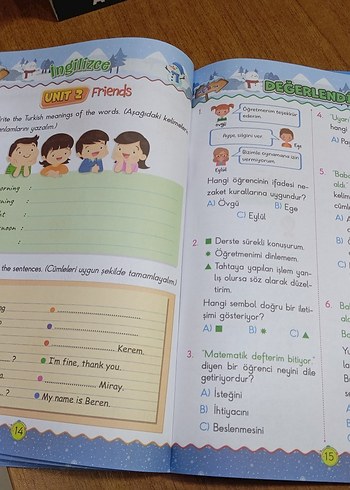 İngilizce
UNIT 2 Friends
rite the Turkish meanings of the words. (Aşağıdaki kelimelerin
anlamlarını yazalım.)
orning :
:
:
noon :
:
the sentences. (Cümleleri uygun şekilde tamamlayalım.)
Kerem.
? I'm fine, thank you.
Miray.
? My name is Beren.
14
DEĞERLENDİ
1.
Öğretmenim teşekkür
ederim.
Övgü
Ayşe, silgini ver.
Ege
Bizimle oynamana izin
vermiyorum.
Eylül
Hangi öğrencinin ifadesi ne-
zaket kurallarına uygundur?
A) Övgü B) Ege
C) Eylül
2. ■ Derste sürekli konuşurum.
● Öğretmenimi dinlemem.
▲ Tahtaya yapılan işlem yan-
lış olursa söz alarak düzel-
tirim.
Hangi sembol doğru bir ileti-
şimi gösteriyor?
A) ■ B) ● C) ▲
3. "Matematik defterim bitiyor."
diyen bir öğrenci neyini dile
getiriyordur?
A) İsteğini
B) İhtiyacını
C) Beslenmesini
4. "Uyarı
hangi
A) Pa
5.
aldı
kelim
cüml
A)
B)
C)
6.
15